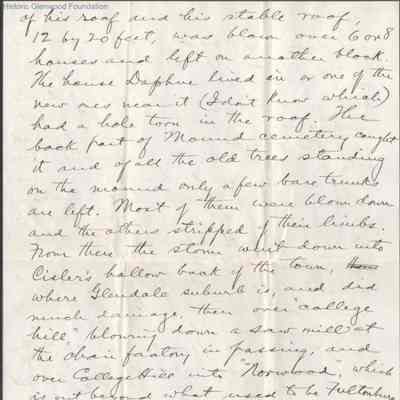 Historic Glenwood Foundation
of his roof and his stable roof,
12 by 20 feet, was blown over 6 or 8
houses and left on another block.
The house Daphne lived in or one of the
new ones near it (I don't know which)
had a hole torn in the roof. The
back part of Mound cemetery caught
it and of all the old trees standing
on the mound only a few bare trunks
are left. Most of them were blown down
and the others stripped of their limbs.
From there the storm went down into
Cisler's hollow back of the town,
where Glendale suburb is, and did
much damage, then over "college
hill" blowing down a saw mill at
the chair factory in passing, and
over College Hill into "Norwood", which
is out beyond what used to be Fultonburg